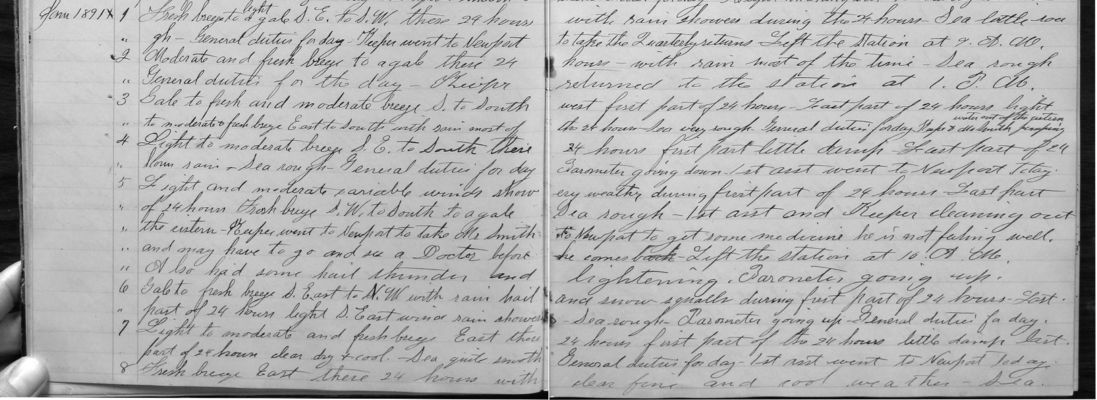 Jan 1891 1 Fresh breeze to light gale S.E. to S.W. these 24 hours with rain showers during the 24 hours - Sea little rou
" gh - General duties for day - Keeper went to Newport to take the Quarterly returns Left the station at 9. A.M.
2 Moderate and fresh breeze to a gale these 24 hours - with rain most of the time - Sea rough
" General duties for the day - Keeper returned to the station at 1. P.M.
3 Gale to fresh and moderate breeze S. to South west first part of 24 hours - Last part of 24 hours light
" to moderate & fresh breeze East to South with rain most of the 24 hours Sea very rough. General duties for day. Keeper & Mr Smith pumping water out of the cistern
4 Light to moderate breeze S.E. to South these 24 hours first part little damp - Last part of 24
" hours rain - Sea rough - General duties for day Barometer going down. 1st asst went to Newport today.
5 Light and moderate variable winds show ery weather during first part of 24 hours - Last part
" of 24 hours Fresh breeze S.W. to South to a gale Sea rough - 1st asst and Keeper cleaning out
" the cistern - Keeper went to Newport to take Mr Smith to Newport to get some medicine he is not feling well.
" and may have to go and see a Doctor before he comes back - Left the station at 10. A.M.
" Also had some hail thunder and lightening. Barometer going up.
6 Gale to fresh breeze S. East to N.W with rain hail and snow squalls during first part of 24 hours - Last
" part of 24 hours light S. East winds rain showers - Sea rough - Barometer going up - General duties for day
7 Light to moderate and fresh breeze East these 24 hours first part of the 24 hours little damp last
" part of 24 hours clear dry & cool - Sea quite smooth General duties for day - 1st asst went to Newport today.
8 Fresh breeze East these 24 hours with clear fine and cool weather - Sea